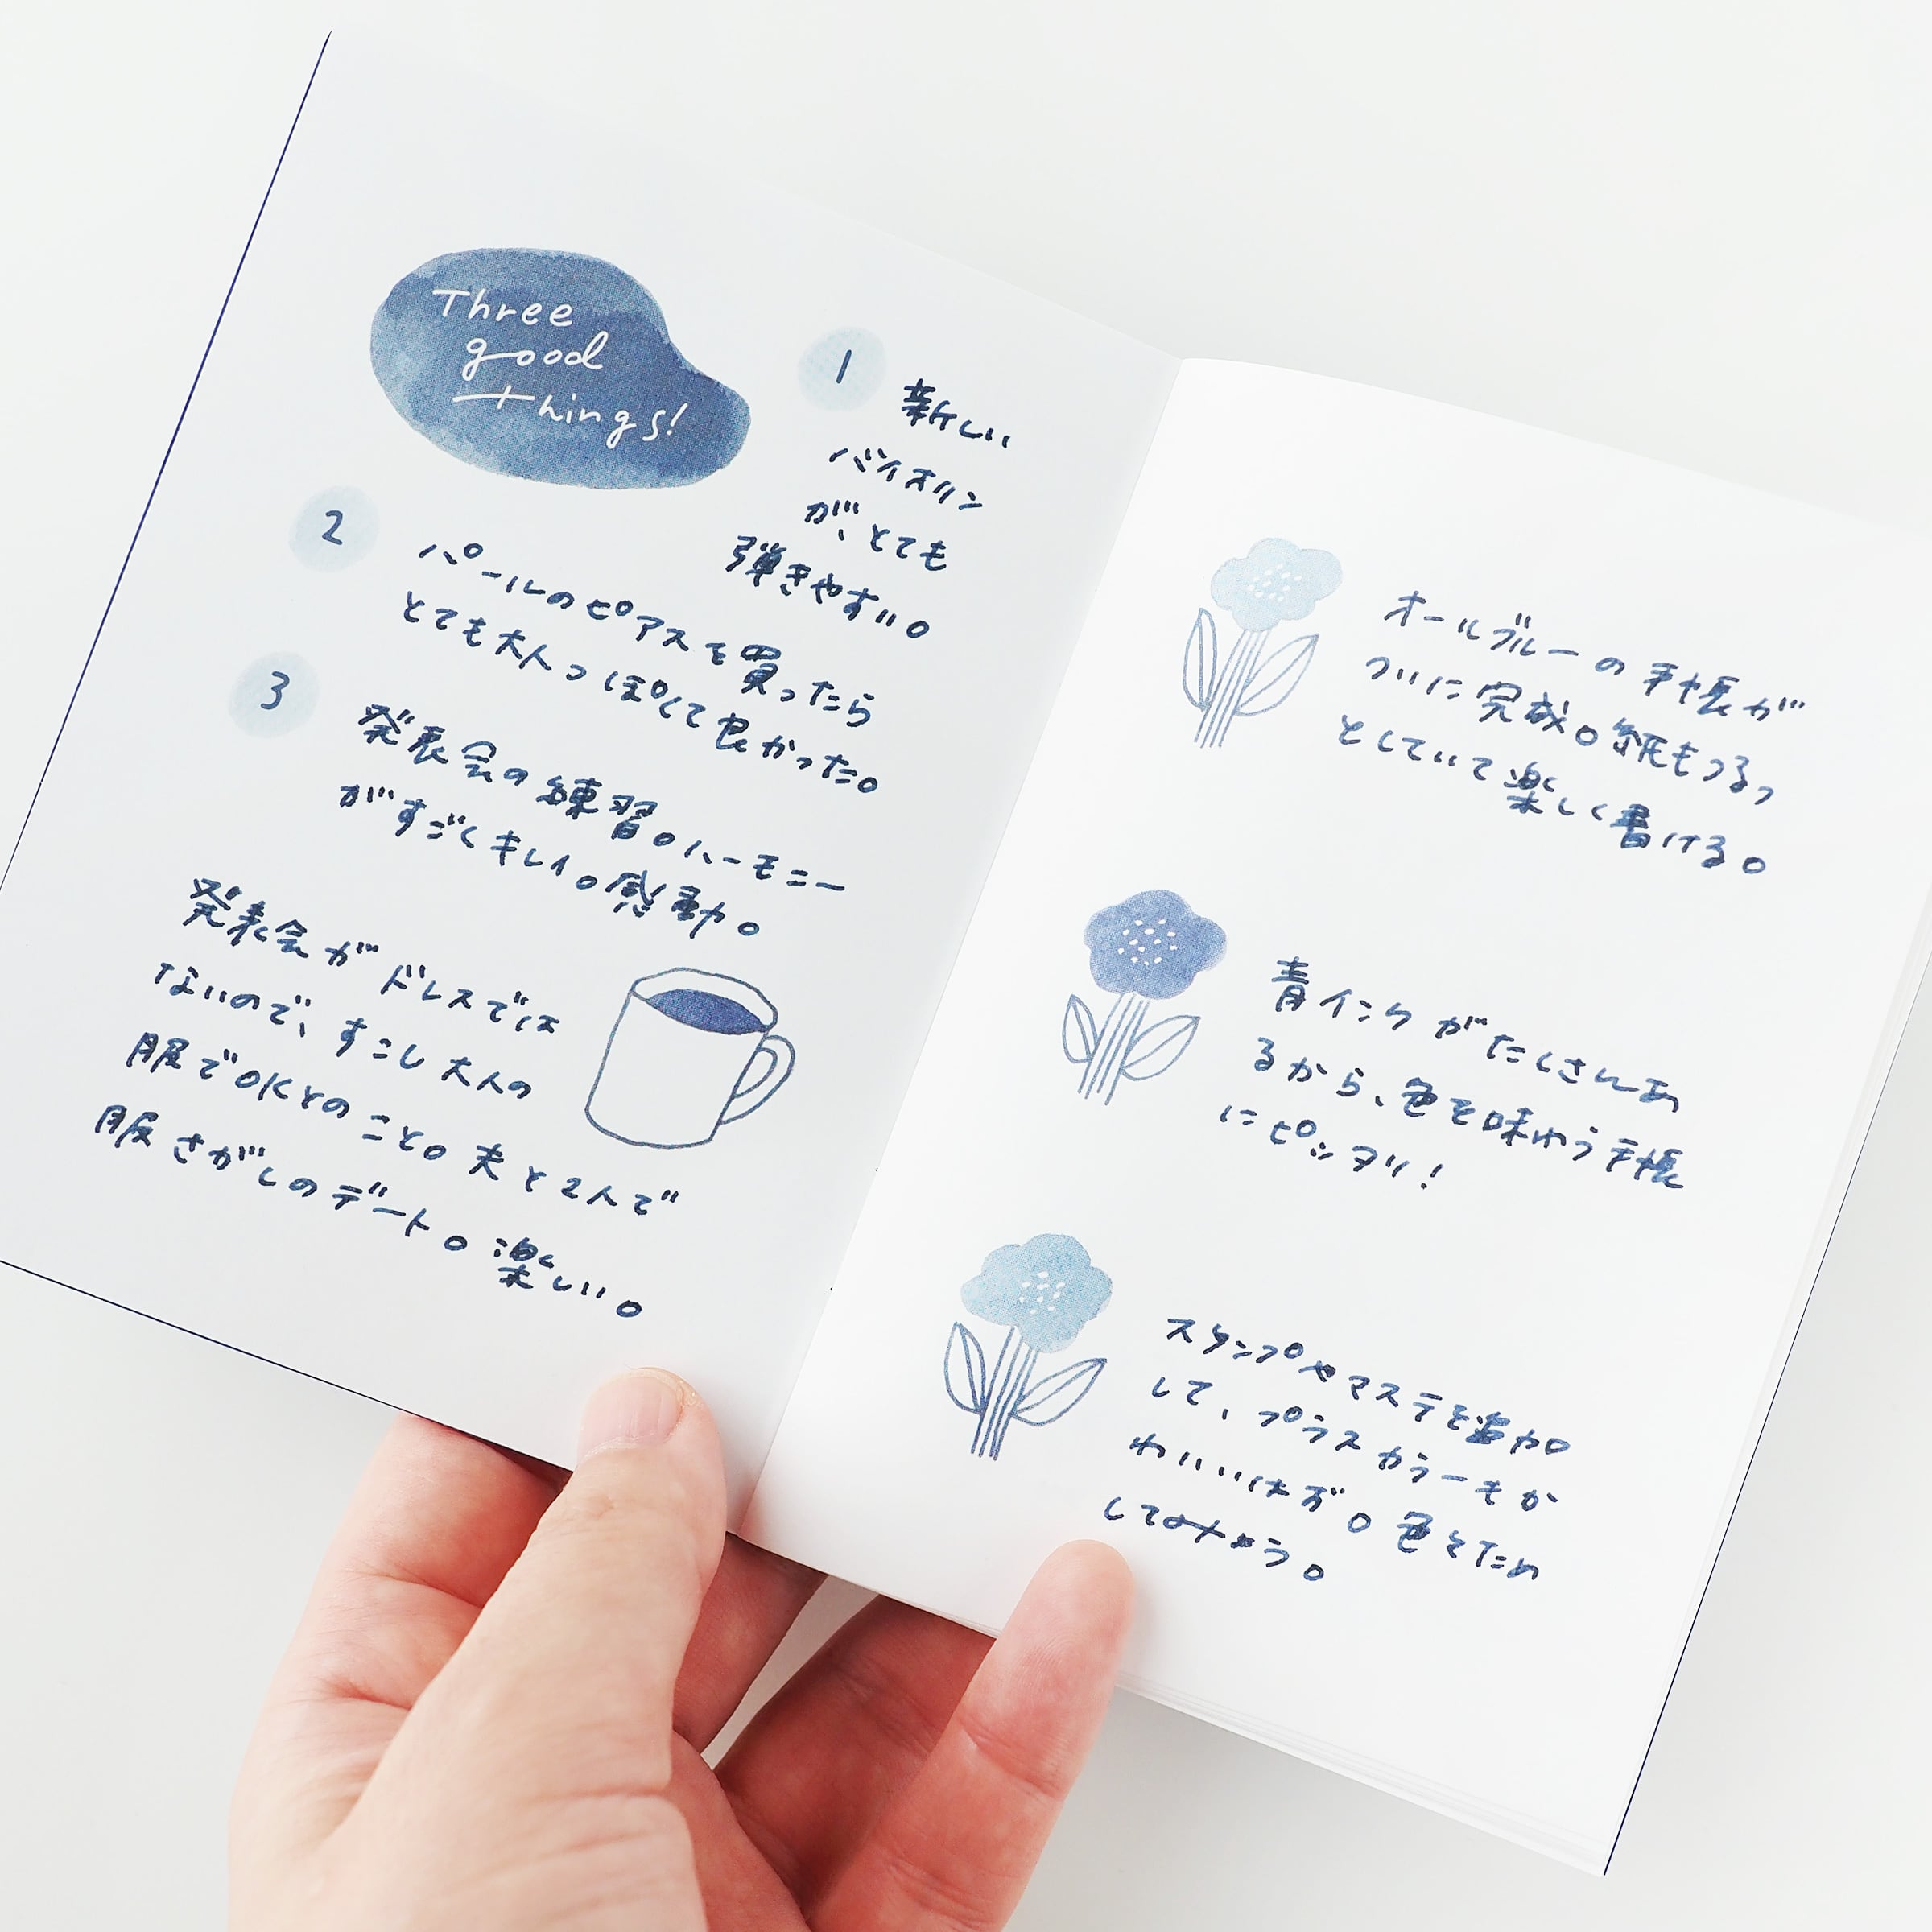 Three
good
things!
1
新しい
バイオリン
が、とても
弾きやすい。
2
パールのピアスを買ったら
とても大人っぽくて良かった。
3
発表会の練習。ハーモニー
がすごくキレイ。感動。
発表会がドレスでは
ないので、すこし大人の
服でOKとのこと。夫と2人で
服さがしのデート。楽しい。
オールブルーの手帳が
ついに完成。紙もつるっ
としていて楽しく書ける。
青インクがたくさんあ
るから、色を味わう手帳
にピッタリ!
スタンプやマステを追加
して、プラスカラーもか
わいいはず。色々ため
してみよう。